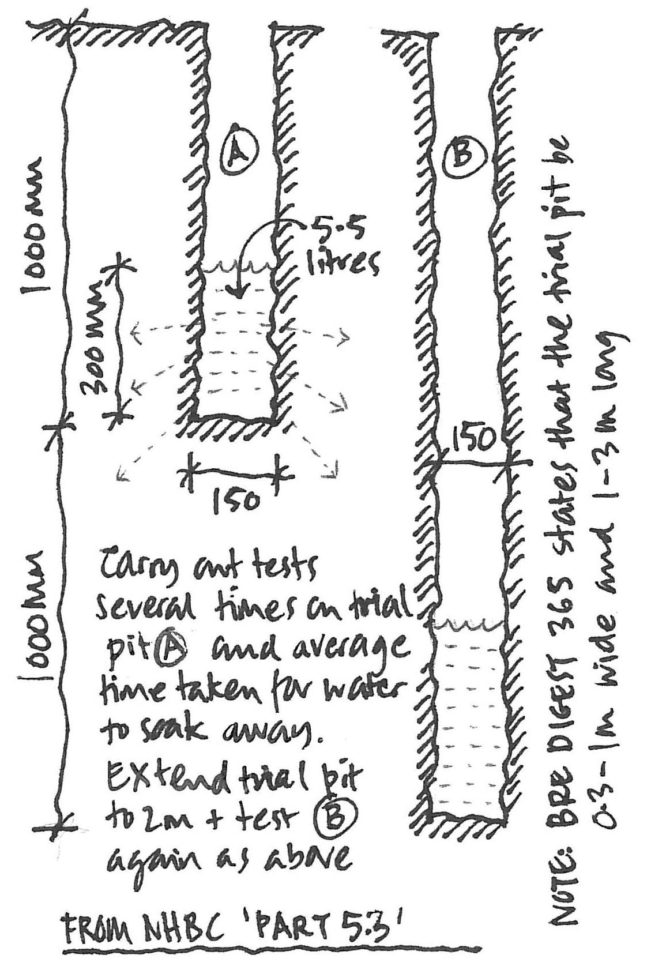 A
B
5.5
litres
1000mm
300mm
150
150
1000mm
Carry out tests
several times on trial
pit A and average
time taken for water
to soak away.
Extend trial pit
to 2m + test B
again as above
FROM NHBC 'PART 5.3'
NOTE: BRE DIGEST 365 states that the trial pit be
0.3-1m wide and 1-3m long